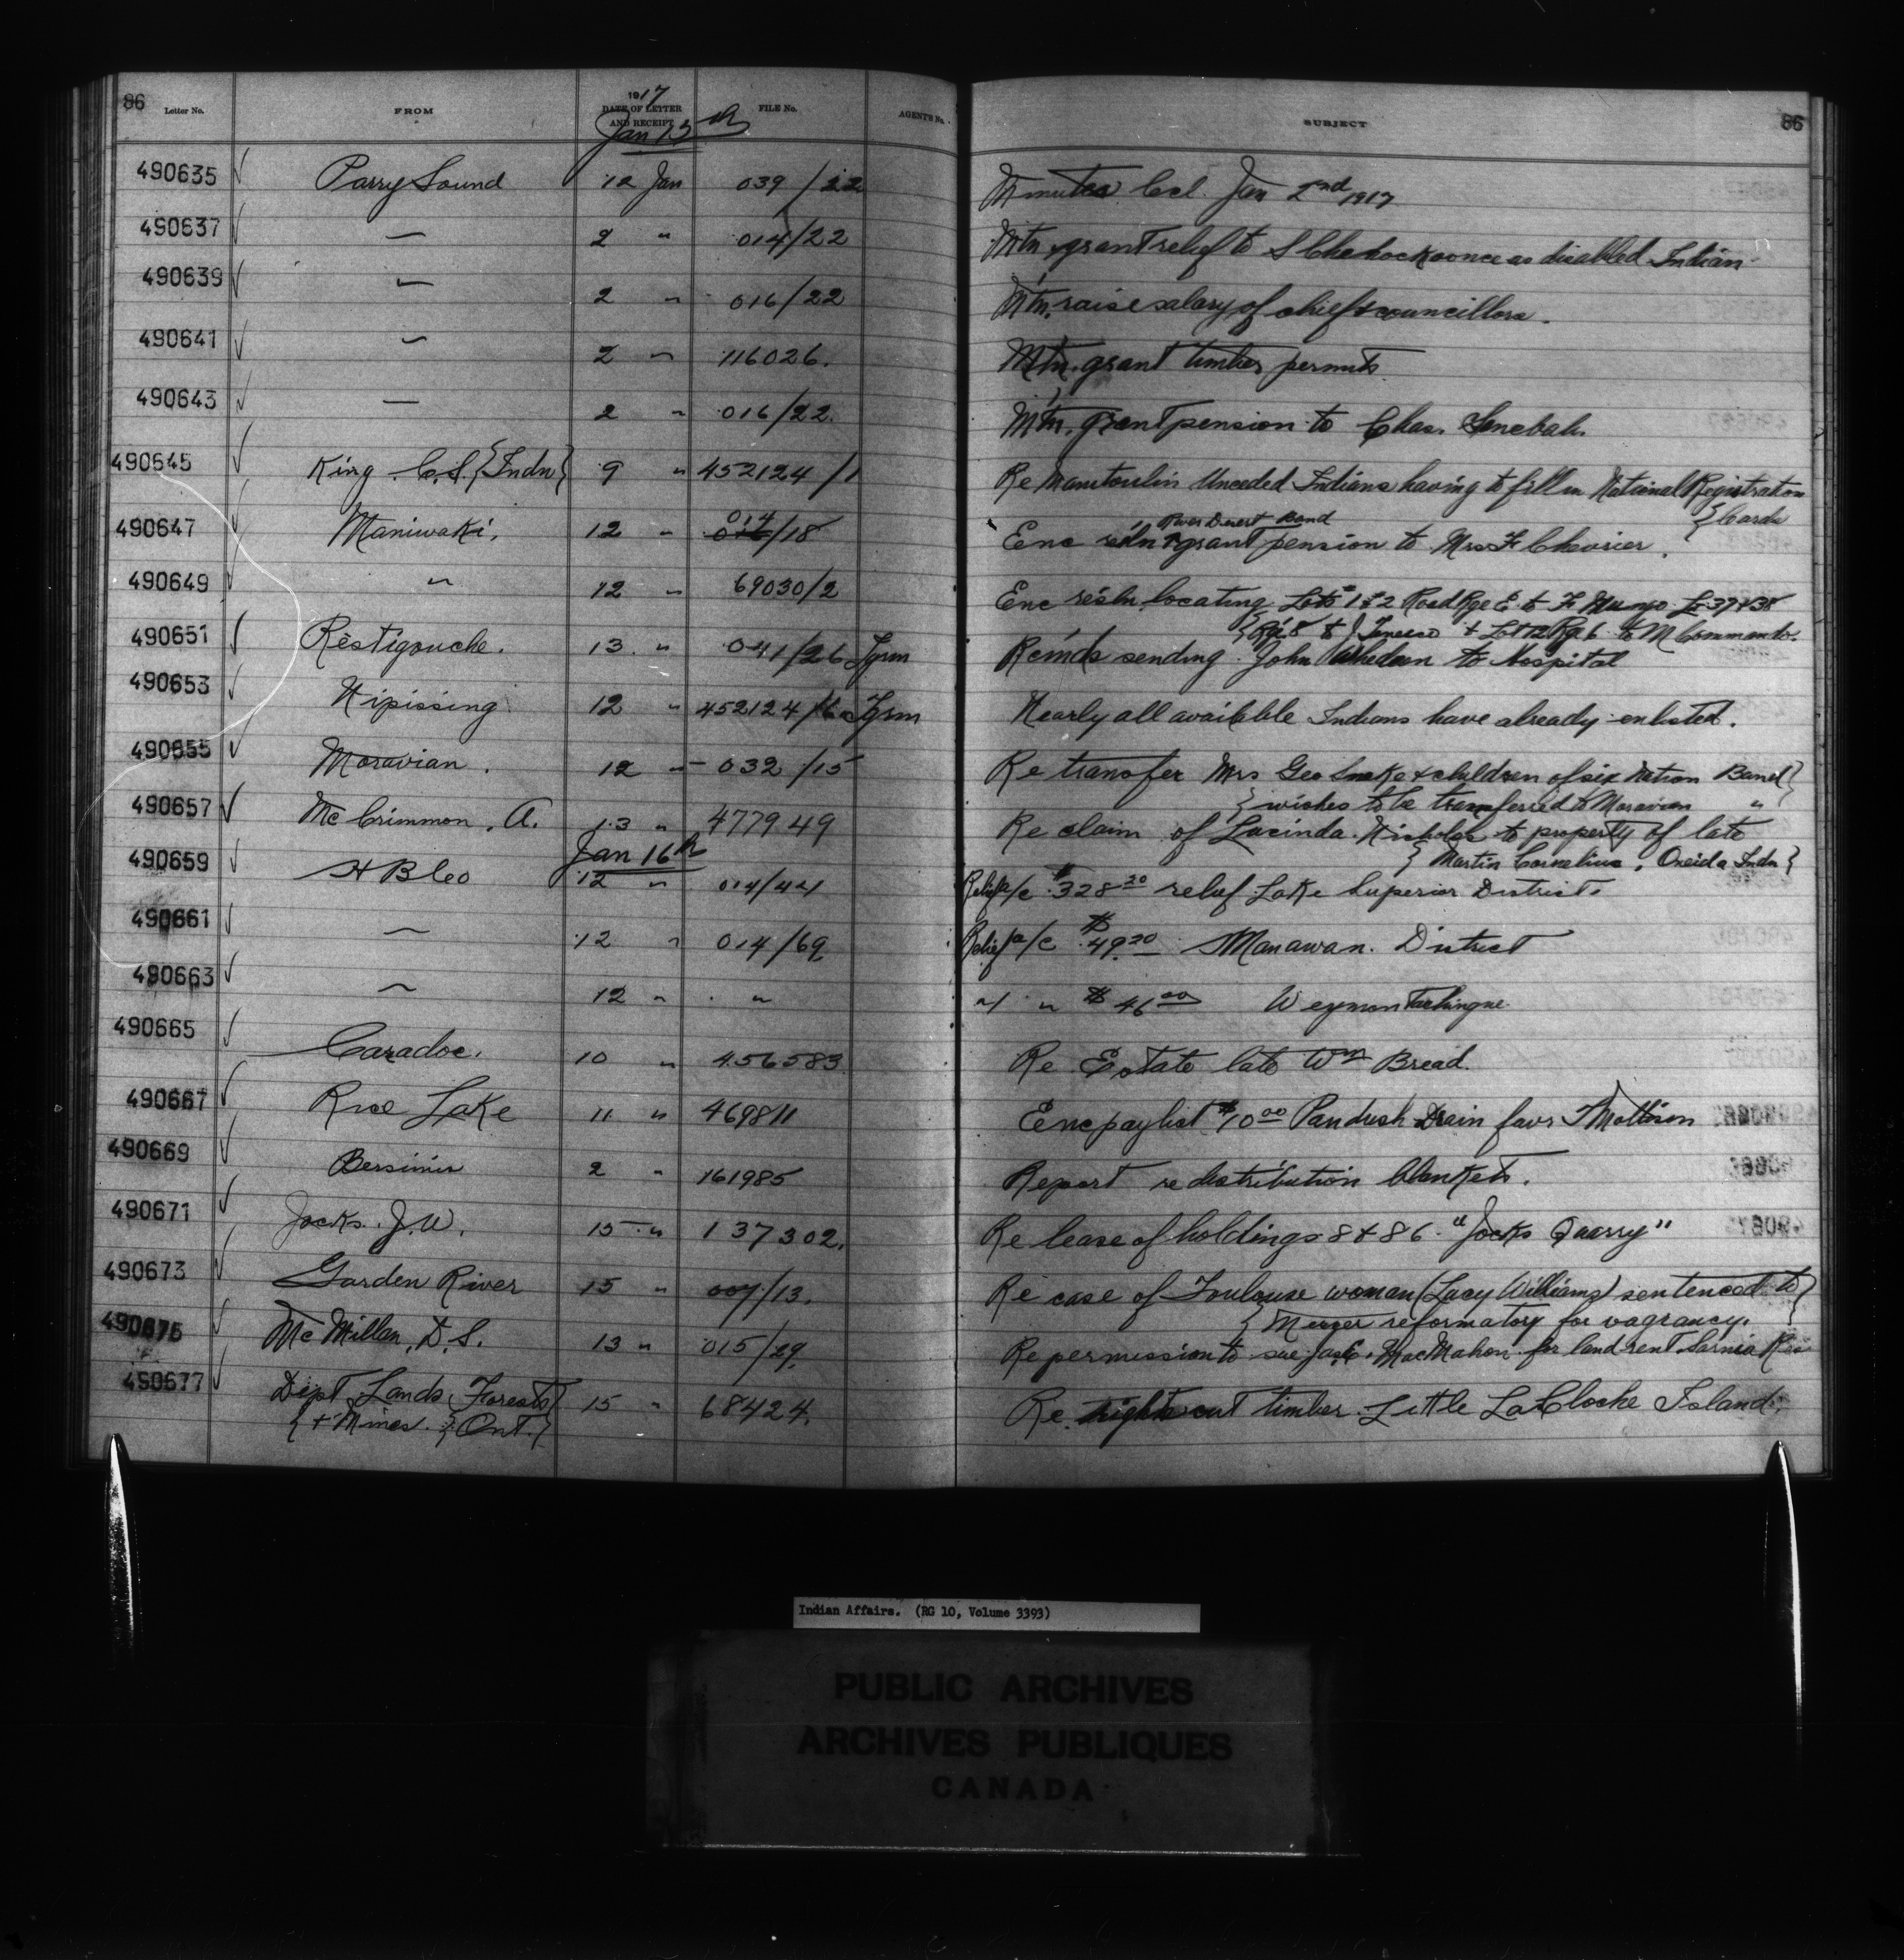 86 Letter No. FROM 1917 DATE OF LETTER AND RECEIPT FILE No. AGENT'S No. SUBJECT 86
Jan 15th
490635 Parry Sound 12 Jan 039/22 Minutes Ccl. Jan 2nd 1917
490637 " 2 " 014/22 Mtn grant relief to as disabled Indian
490639 " 2 " 016/22 Mtn. raise salary of chief & councillors.
490641 " 2 " 116026. Mtn. grant timber permits
490643 " 2 " 016/22. Mtn. grant pension to Chas.
490645 King C.S. {Indn} 9 " 452124/1 Re Manitoulin Unceded Indians having to fill in National Registration
{Cards
490647 Maniwaki. 12 " 014/18 Enc resln River Desert Band grant pension to Mrs F Chevrier.
490649 " 12 " 69030/2 Enc resln locating Lots 1 & 2 Road Rge E to F Lo 37 & 38
{Rge 8 to J Tenesco & Lot 12 Rge 6 to M Commando.
490651 Restigouche. 13 " 041/26 Tgrm Reinds sending John to Hospital
490653 Nipissing 12 " 452124/ Tgrm Nearly all available Indians have already enlisted.
490655 Moravian. 12 " 032/15 Re transfer Mrs Geo Snake & children of six Nation Band}
{wishes to be transferred to Moravian "
490657 McCrimmon, A. 13 " 477949 Re claim of Lucinda Nicholas to property of late
{Martin Cornelius, Oneida Indn}
Jan 16th
490659 H B Co 12 " 014/44 Relief a/c $328.20 relief Lake Superior District.
490661 " 12 " 014/69 Relief a/c $49.20 Manawan. District
490663 " 12 " " " " $46.00 Weymontachingue
490665 Caradoc. 10 " 456583 Re Estate late Wm Bread.
490667 Rice Lake 11 " 469811 Enc paylist $10.00 Pandush Drain favr
490669 Bersimis 2 " 161985 Report re distribution blankets.
490671 Jocks. J.W. 15 " 137302. Re lease of holdings 8 & 86 "Jocks Quarry"
490673 Garden River 15 " 007/13. Re case of Toulouse woman (Lucy Williams) sentenced to}
{Mercer reformatory for vagrancy.
490675 McMillan, D.S. 13 " 015/29. Re permission to sue Jas. C. MacMahon for land rent Sarnia Res
490677 Dept Lands Forests} 15 " 68424. Re. rights cut timber Little LaCloche Island.
{& Mines. {Ont.}
Indian Affairs. (RG 10, Volume 3393)
PUBLIC ARCHIVES
ARCHIVES PUBLIQUES
CANADA